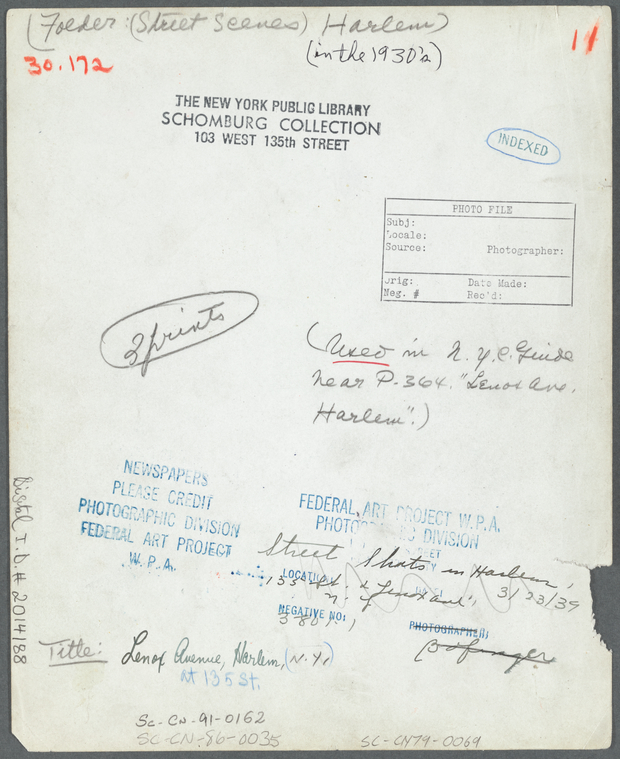 (Folder: (Street Scenes) Harlem)
(in the 1930's)
11
30.172
THE NEW YORK PUBLIC LIBRARY
SCHOMBURG COLLECTION
103 WEST 135th STREET
INDEXED
PHOTO FILE
Subj:
Locale:
Source: Photographer:
Orig: Date Made:
Neg. # Rec'd:
2 prints
(Used in N.Y.C. Guide
near P-364. "Lenox Ave.
Harlem".)
NEWSPAPERS
PLEASE CREDIT
PHOTOGRAPHIC DIVISION
FEDERAL ART PROJECT
W.P.A.
FEDERAL ART PROJECT W.P.A.
PHOTOGRAPHIC DIVISION
Street Shots in Harlem,
LOCATION
135 St. & Lenox Ave,
3/23/39
N.Y.
NEGATIVE NO:
PHOTOGRAPHER:
Digital I.D.# 2014188
Title: Lenox Avenue, Harlem, (N.Y.)
At 135 St.
SC-CN-91-0162
SC-CN-86-0035
SC-CN79-0069